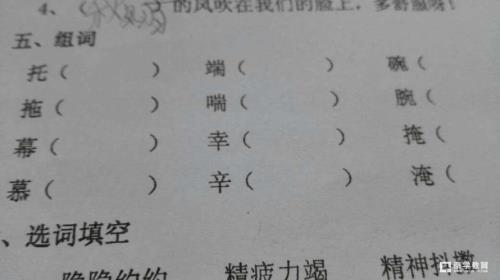 4、（ ）的风吹在我们的脸上，多舒服呀！
五、组词
托（ ） 端（ ） 碗（
拖（ ） 喘（ ） 腕（
幕（ ） 幸（ ） 掩（
慕（ ） 辛（ ） 淹（
、选词填空
隐隐约约 精疲力竭 精神抖擞
乐学教育